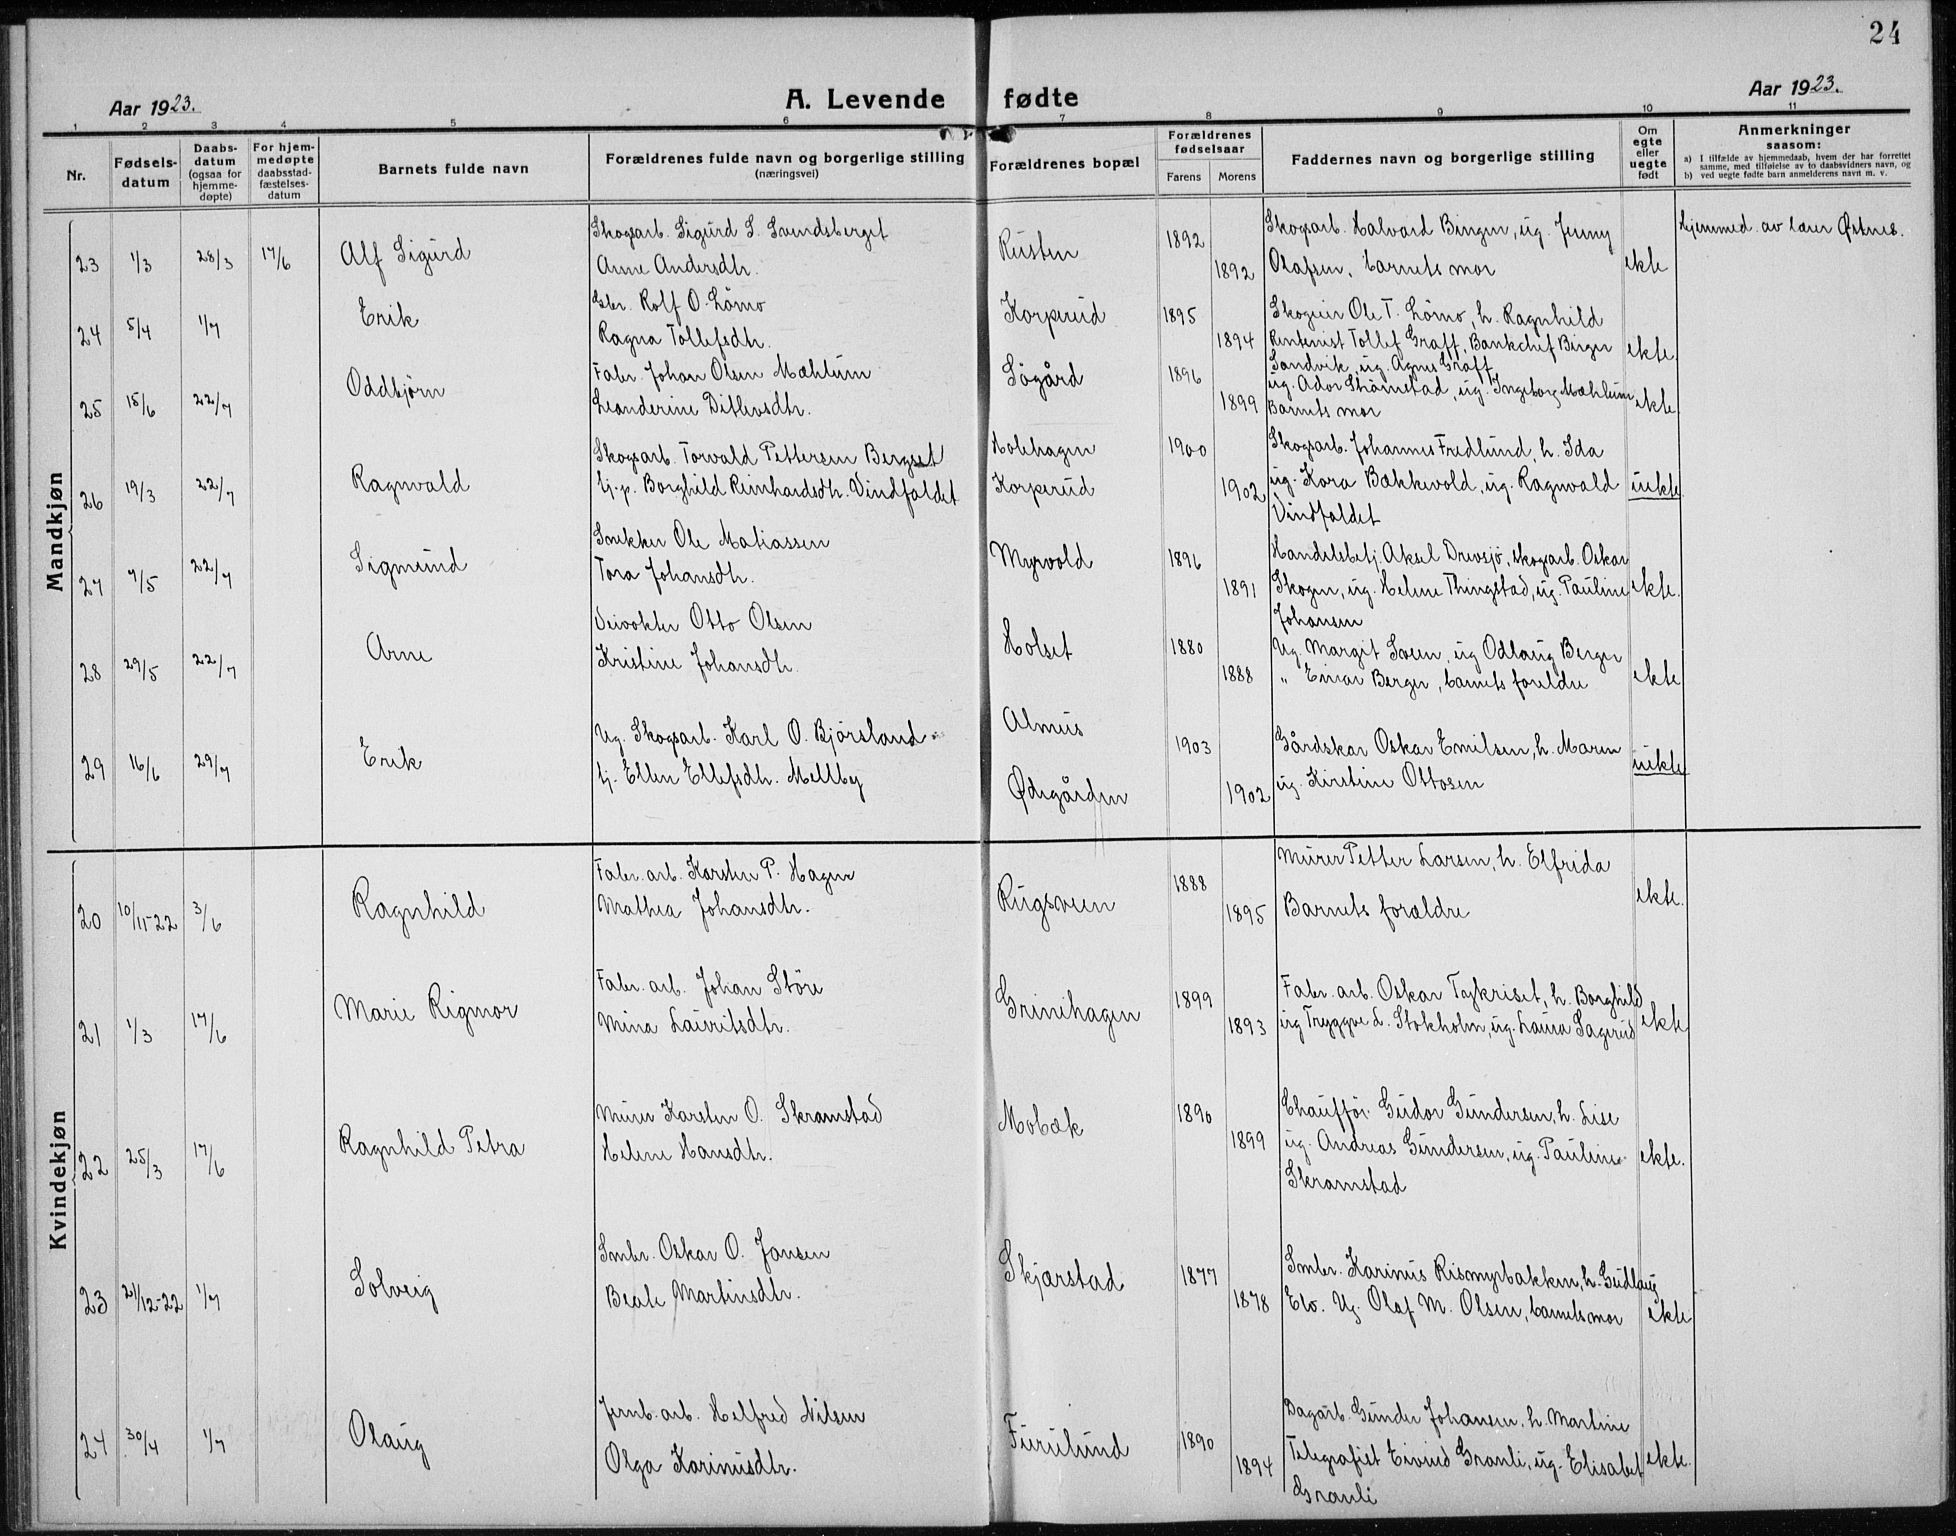 24
Aar 1923.
A. Levende fødte
Aar 1923.
1 2 3 4 5 6 7 8 9 10 11
Nr.
Fødsels-
datum
Daabs-
datum
(ogsaa for
hjemme-
døpte)
For hjem-
medøpte
daabsstad-
fæstelses-
datum
Barnets fulde navn
Forældrenes fulde navn og borgerlige stilling
(næringsvei)
Forældrenes bopæl
Forældrenes
fødselsaar
Farens Morens
Faddernes navn og borgerlige stilling
Om
egte
eller
uegte
født
Anmerkninger
saasom:
a) I tilfælde av hjemmedaab, hvem der har forrettet
samme, med tilføielse av to daabsvidners navn, og
b) ved uegte fødte barn anmelderens navn m. v.
Mandkjøn
23 1/3 28/3 17/6 Alf Sigurd
Skogsarb. Sigurd S. Svendsberget
Anne Andersdtr.
Rusten 1892 1892
Skogsarb. Halvard Bingen, ug. Jenny
Olafsen, barnets mor
ekte
Hjemmed. av lærer Østnes.
24 5/4 1/7 Erik
Gbr. Rolf O. Lömo
Ragna Tollefsdtr.
Korperud 1895 1894
Skogeier Ole T. Lömo, h. Ragnhild
Rentenist Tollef Graff, Bankchef Birger
Sandvik, ug. Agnes Graff
ekte.
25 15/6 22/7 Oddbjørn
Fabr. Johan Olsen Mæhlum
Leonderine Ditlevsdtr.
Sögård 1896 1899
ug. Ador Strömstad, ug. Ingeborg Mæhlum
Barnets mor
ekte.
26 19/3 22/7 Ragnvald
Skogsarb. Torvald Pettersen Bergset
tj.p. Borghild Reinhardsdtr. Vindfaldet
Holehagen
Korperud
1900 1902
Skogsarb. Johannes Fredlund, h. Ida
ug. Kora Bækkevold, ug. Ragnvald
Vindfaldet
uekte
27 7/5 22/7 Sigmund
Snekker Ole Matiassen
Tora Johansdtr.
Myrvold 1896 1891
Handelsbetj. Aksel Drevsjö, skogsarb. Oskar
Skogen, ug. Helene Thingstad, ug. Pauline
Johansen
ekte.
28 29/5 22/7 Arne
Veivokter Otto Olsen
Kristine Johansdtr.
Holset 1880 1888
Ug. Margit Sveen, ug Odlaug Berger
" Einar Berger, barnets foreldre
ekte
29 16/6 29/7 Erik
Ug. Skogsarb. Karl O. Bjørsland
tj. Ellen Ellefsdtr. Mellby
Almus
Ødegården
1903 1902
Gårdskar Oskar Emilsen, h. Maren
ug. Kirstine Ottosen
uekte
Kvindekjøn
20 10/11-22 3/6 Ragnhild
Fabr. arb. Karsten P. Hagen
Mathea Johansdtr.
Rugsveen 1888 1895
Murer Petter Larsen, h. Elfrida
Barnets forældre
ekte.
21 1/3 17/6 Marie Rigmor
Fabr. arb. Johan Störe
Mina Lauritsdtr.
Grinihagen 1899 1893
Fabr. arb. Oskar Tykriset, h. Borghild
ug Tryggve L. Stokholm, ug. Laura Sagerud
ekte
22 25/3 17/6 Ragnhild Petra
Murer Karsten O. Skramstad
Helene Hansdtr.
Mobæk 1890 1899
Chaufför Gudor Gundersen, h. Lise
ug. Andreas Gundersen, ug. Pauline
Skramstad
ekte.
23 21/12-22 1/7 Solveig
Smbr. Oskar O. Jansen
Beate Martinsdtr.
Skjærstad 1877 1878
Smbr. Karinus Rismyrbakken, h. Gudlaug
Elv. Ug. Olaf M. Olsen, barnets mor
ekte
24 30/4 1/7 Olaug
Jernb. arb. Helfred Nilsen
Olga Karinusdtr.
Furulund 1890 1894
Dagarb. Gunder Johansen, h. Martine
Telegrafist Eivind Granli, ug. Elisabet
Granli
ekte.